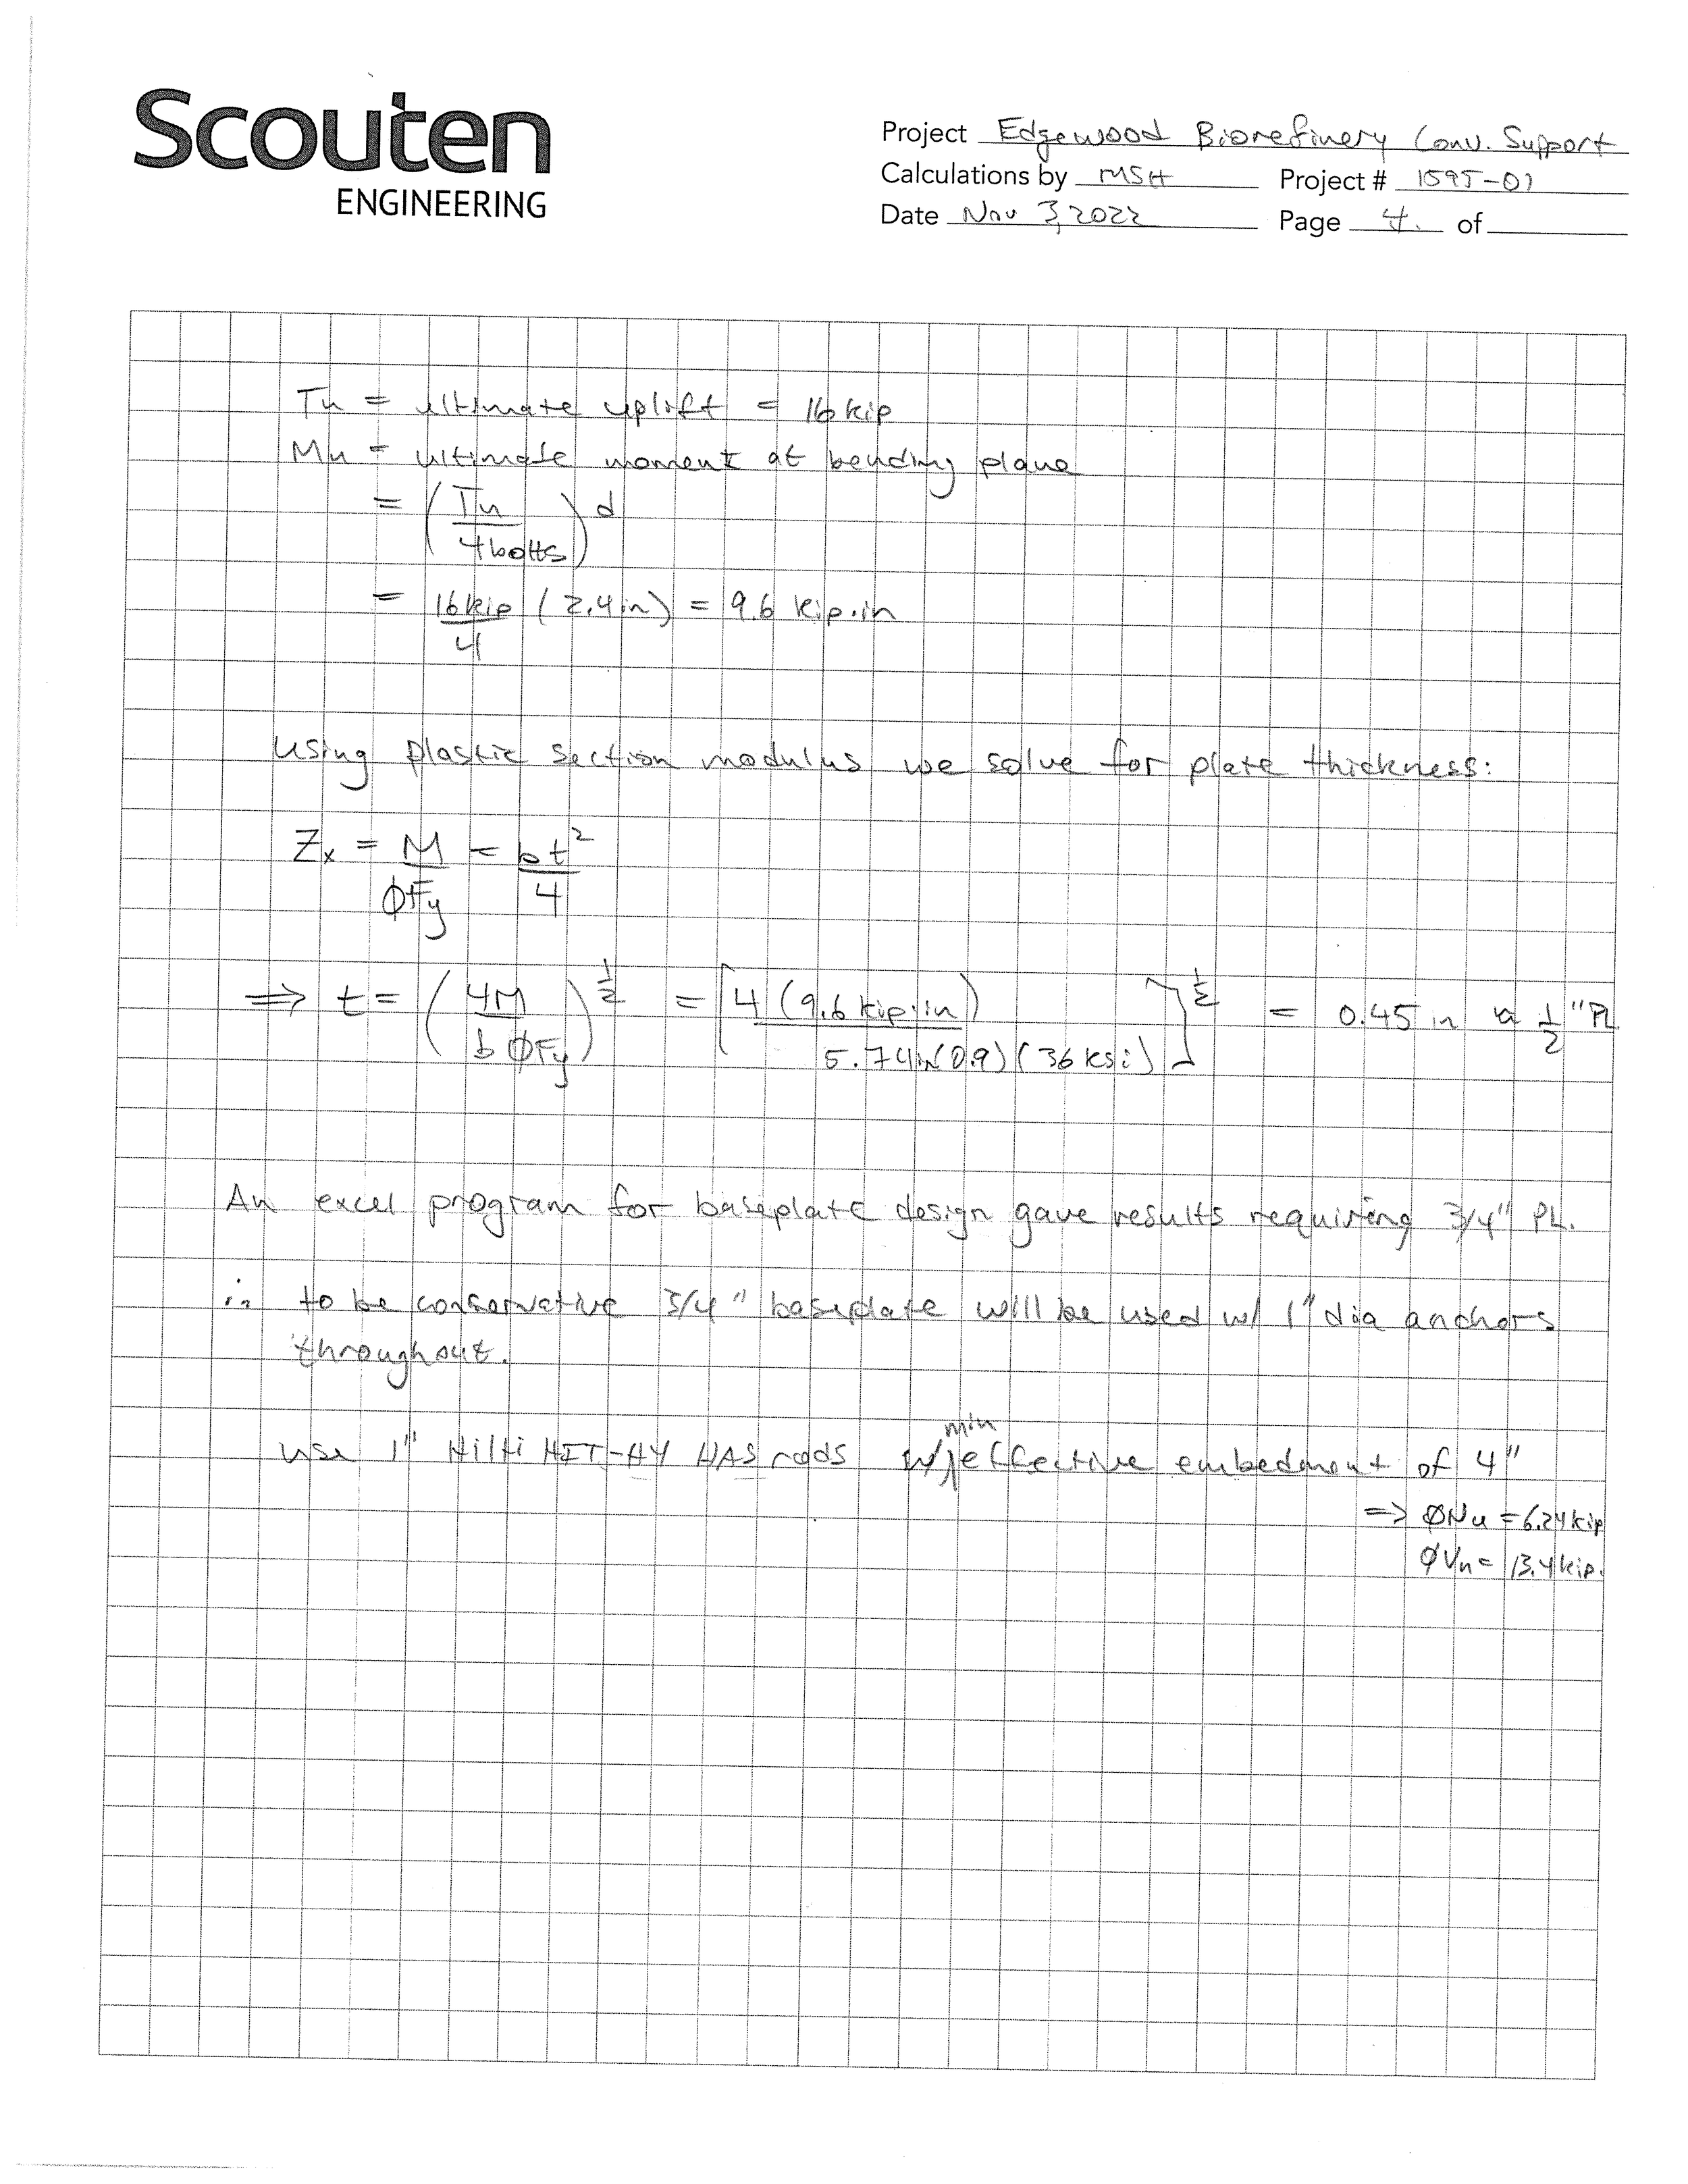 Scouten
ENGINEERING
Project Edgewood Biorefinery Conv. Support
Calculations by MSH Project # 1595-01
Date Nov 3, 2022 Page 4. of
Tu = ultimate uplift = 16 kip
Mu = ultimate moment at bending plane
= (Tu / 4 bolts) d
= 16 kip / 4 (2.4 in) = 9.6 kip·in
Using plastic section modulus we solve for plate thickness:
Zx = M / ϕFy = bt² / 4
⇒ t = (4M / b ϕFy)^1/2 = [4 (9.6 kip·in) / 5.74 in (0.9) (36 ksi)]^1/2 = 0.45 in 1/2" PL
An excel program for baseplate design gave results requiring 3/4" PL.
∴ to be conservative 3/4" baseplate will be used w/ 1" dia anchors
throughout.
use 1" Hilti HIT-HY HAS rods w/ min effective embedment of 4"
⇒ ϕNu = 6.24 kip
ϕVn = 13.4 kip.